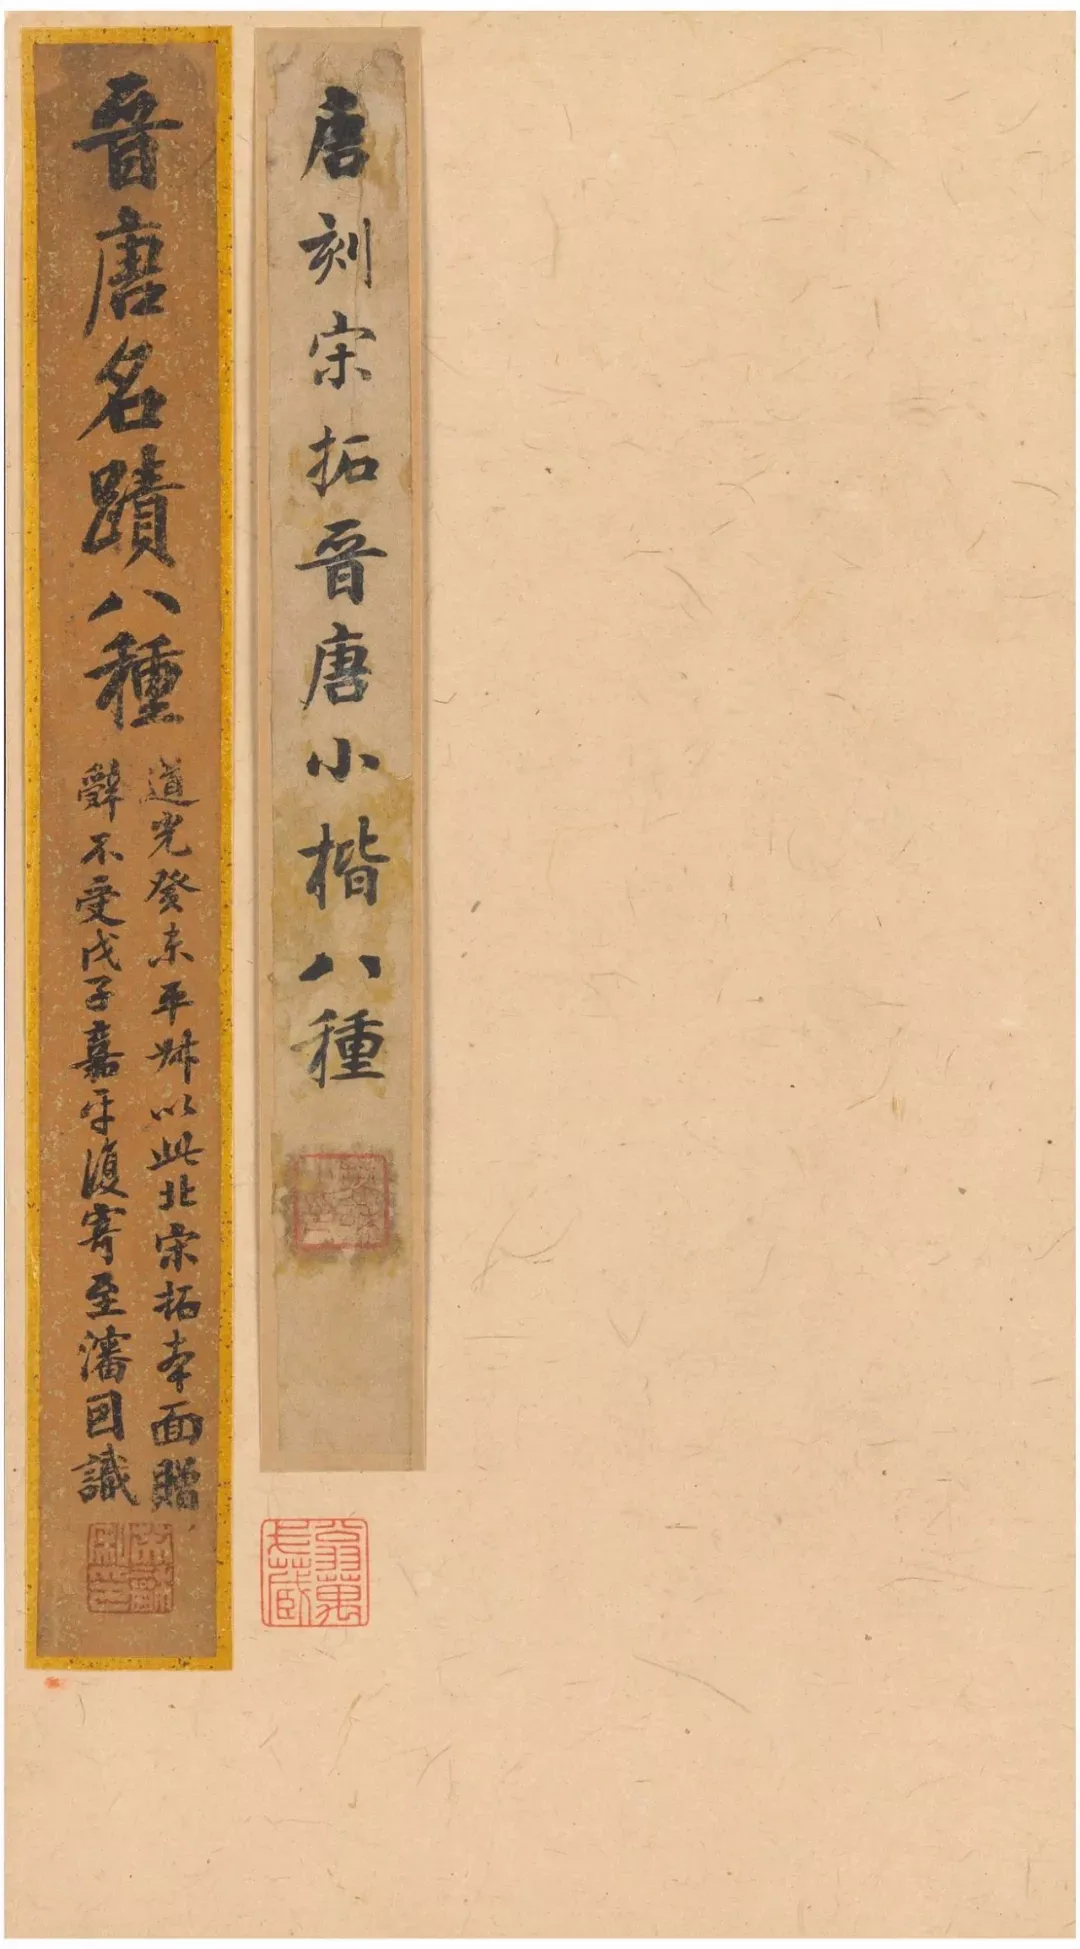 唐刻宋拓晉唐小楷八種
翁萬戈藏
晉唐名蹟八種
道光癸未平叔以此北宋拓本面贈
辭不受戊子嘉平復寄至瀋因識